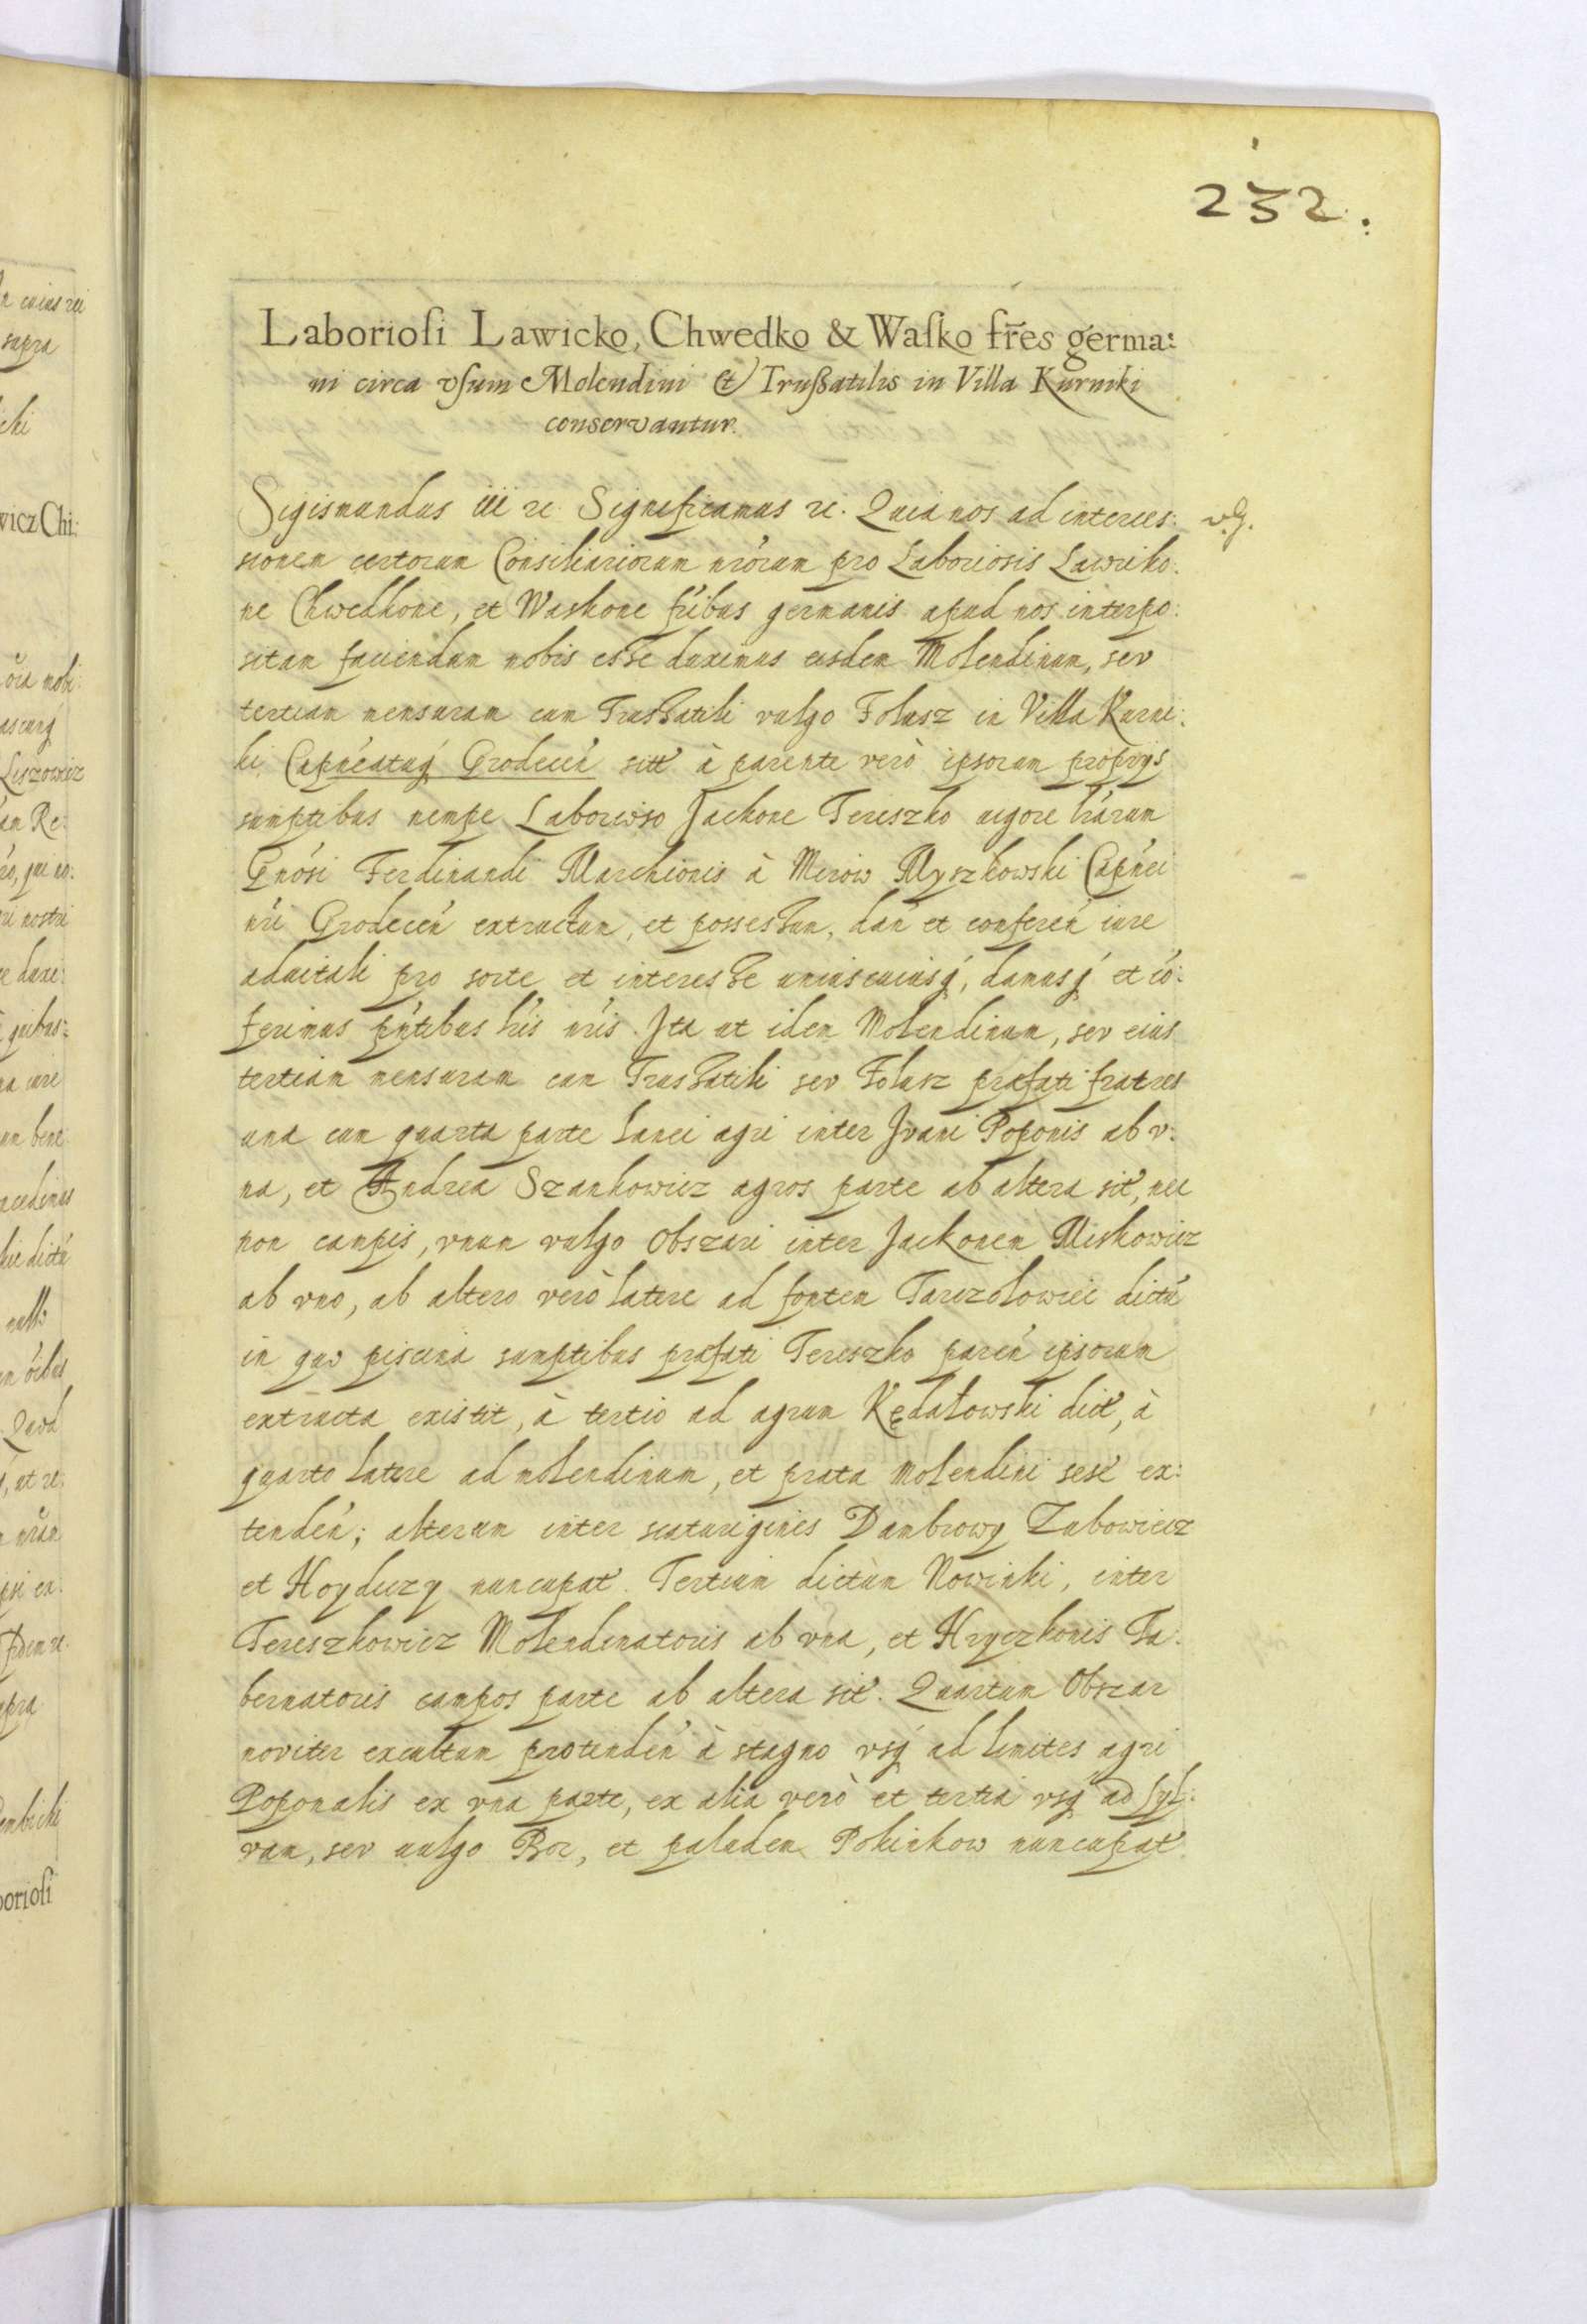 232.
Laboriosi Lawicko, Chwedko & Wasko fr̃es germa:
ni circa vsum Molendini & Trussatilis in Villa Kurniki
conservantur.
Sigismundus iii rc Significamus rc. Quia nos ad interces:
v.G.
sionem certorum Consiliariorum nr̃orum pro Laboriosis Lawriko:
ne Chwedkone, et Waskone fr̃ibus germanis apud nos interpo:
sitam faciendum nobis esse duximus eisdem Molendinum, seu
tertiam mensuram cum Trussatili vulgo Folusz in Villa Kurni:
ki Capñeatuq́ Grodecen̓ sitt à parente verò ipsorum proprys
sumptibus nempe Laborioso Jackone Tereszko uigore lr̃arum
Gñosi Ferdinandi Marchionis à Mirow Myszkowski Capñei
nr̃i Grodecen̓ extructum, et possessum, dan̓ et conferen̓ iure
aduitali pro sorte et interesse uniuscuiusq́, damusq́ et cõ:
ferimus pñtibus lr̃is nr̃is. Ita ut idem Molendinum, seu eius
tertiam mensuram cum Trussatili seu Folusz præfati fratres
una cum quarta parte lanei agri inter Jvani Poponis ab v:
na, et Andrea Szankowicz agros parte ab altera sit̃, nec
non campis, vnum vulgo Obszari inter Jackonem Miskowicz
ab vno, ab altero verò latere ad fontem Tarczolowiec dictũ
in quo piscina sumptibus præfati Tereszko paren̓ ipsorum
extructa existit, à tertio ad agrum Kędalowski dict̃, à
quarto latere ad molendinum, et prata molendini sese ex:
tenden̓; alterum inter scaturigines Dambrowy Zubowiecz
et Hoyduzy nuncupat̃. Tertium dictum Nowinki, inter
Tereszkowicz Molendinatoris ab vna, et Hryczkonis Ta:
bernatoris campos parte ab altera sit̃. Quartum Obszar
noviter excultum protenden̓ à stagno vsq́ ad limites agri
Poponalis ex vna parte, ex alia verò et tertia vsq́ ad Syl:
vam, seu uulgo Bor, et paludem Pohinkow nuncupat̃